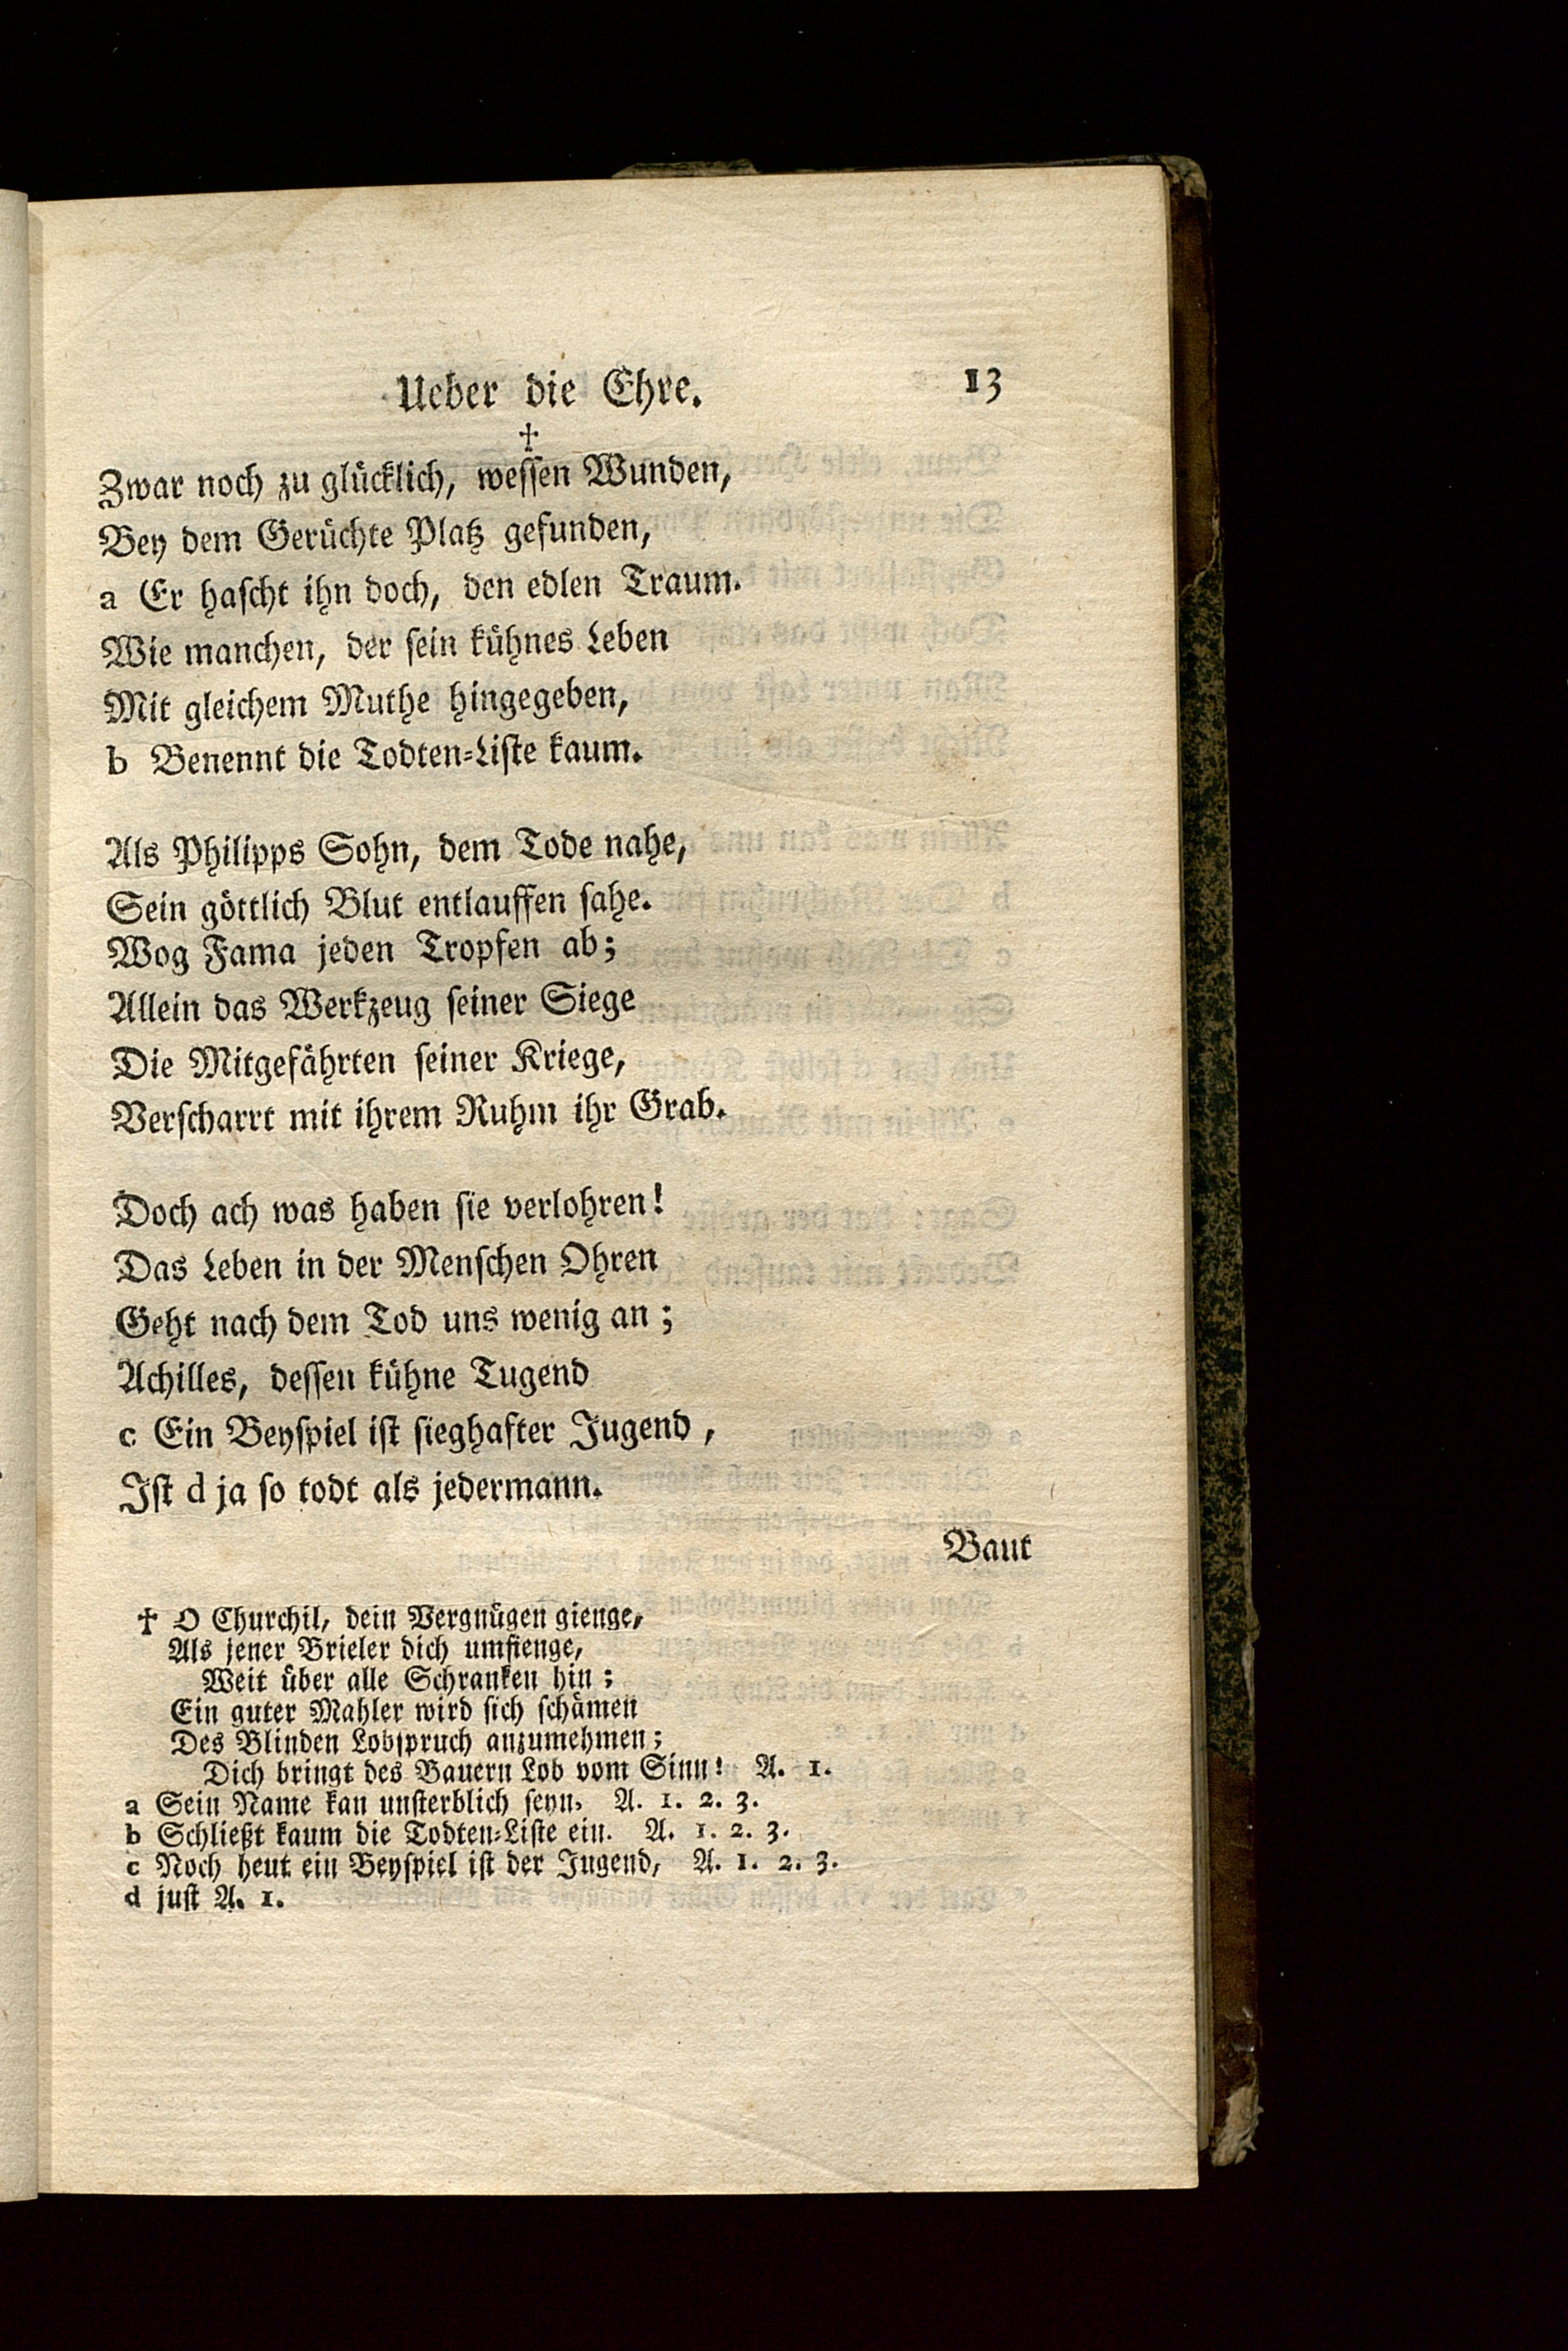 Ueber die Ehre. 13
†
Zwar noch zu glücklich, wessen Wunden,
Bey dem Gerüchte Platz gefunden,
a Er hascht ihn doch, den edlen Traum.
Wie manchen, der sein kühnes Leben
Mit gleichem Muthe hingegeben,
b Benennt die Todten-Liste kaum.
Als Philipps Sohn, dem Tode nahe,
Sein göttlich Blut entlauffen sahe.
Wog Fama jeden Tropfen ab;
Allein das Werkzeug seiner Siege
Die Mitgefährten seiner Kriege,
Verscharrt mit ihrem Ruhm ihr Grab.
Doch ach was haben sie verlohren!
Das Leben in der Menschen Ohren
Geht nach dem Tod uns wenig an;
Achilles, dessen kühne Tugend
c Ein Beyspiel ist sieghafter Jugend,
Ist d ja so todt als jedermann.
Baut
† O Churchil, dein Vergnügen gienge,
Als jener Brieler dich umfienge,
Weit über alle Schranken hin;
Ein guter Mahler wird sich schämen
Des Blinden Lobspruch anzumehmen;
Dich bringt des Bauern Lob vom Sinn! A. 1.
a Sein Name kan unsterblich seyn, A. 1. 2. 3.
b Schließt kaum die Todten-Liste ein. A. 1. 2. 3.
c Noch heut ein Beyspiel ist der Jugend, A. 1. 2. 3.
d just A. 1.